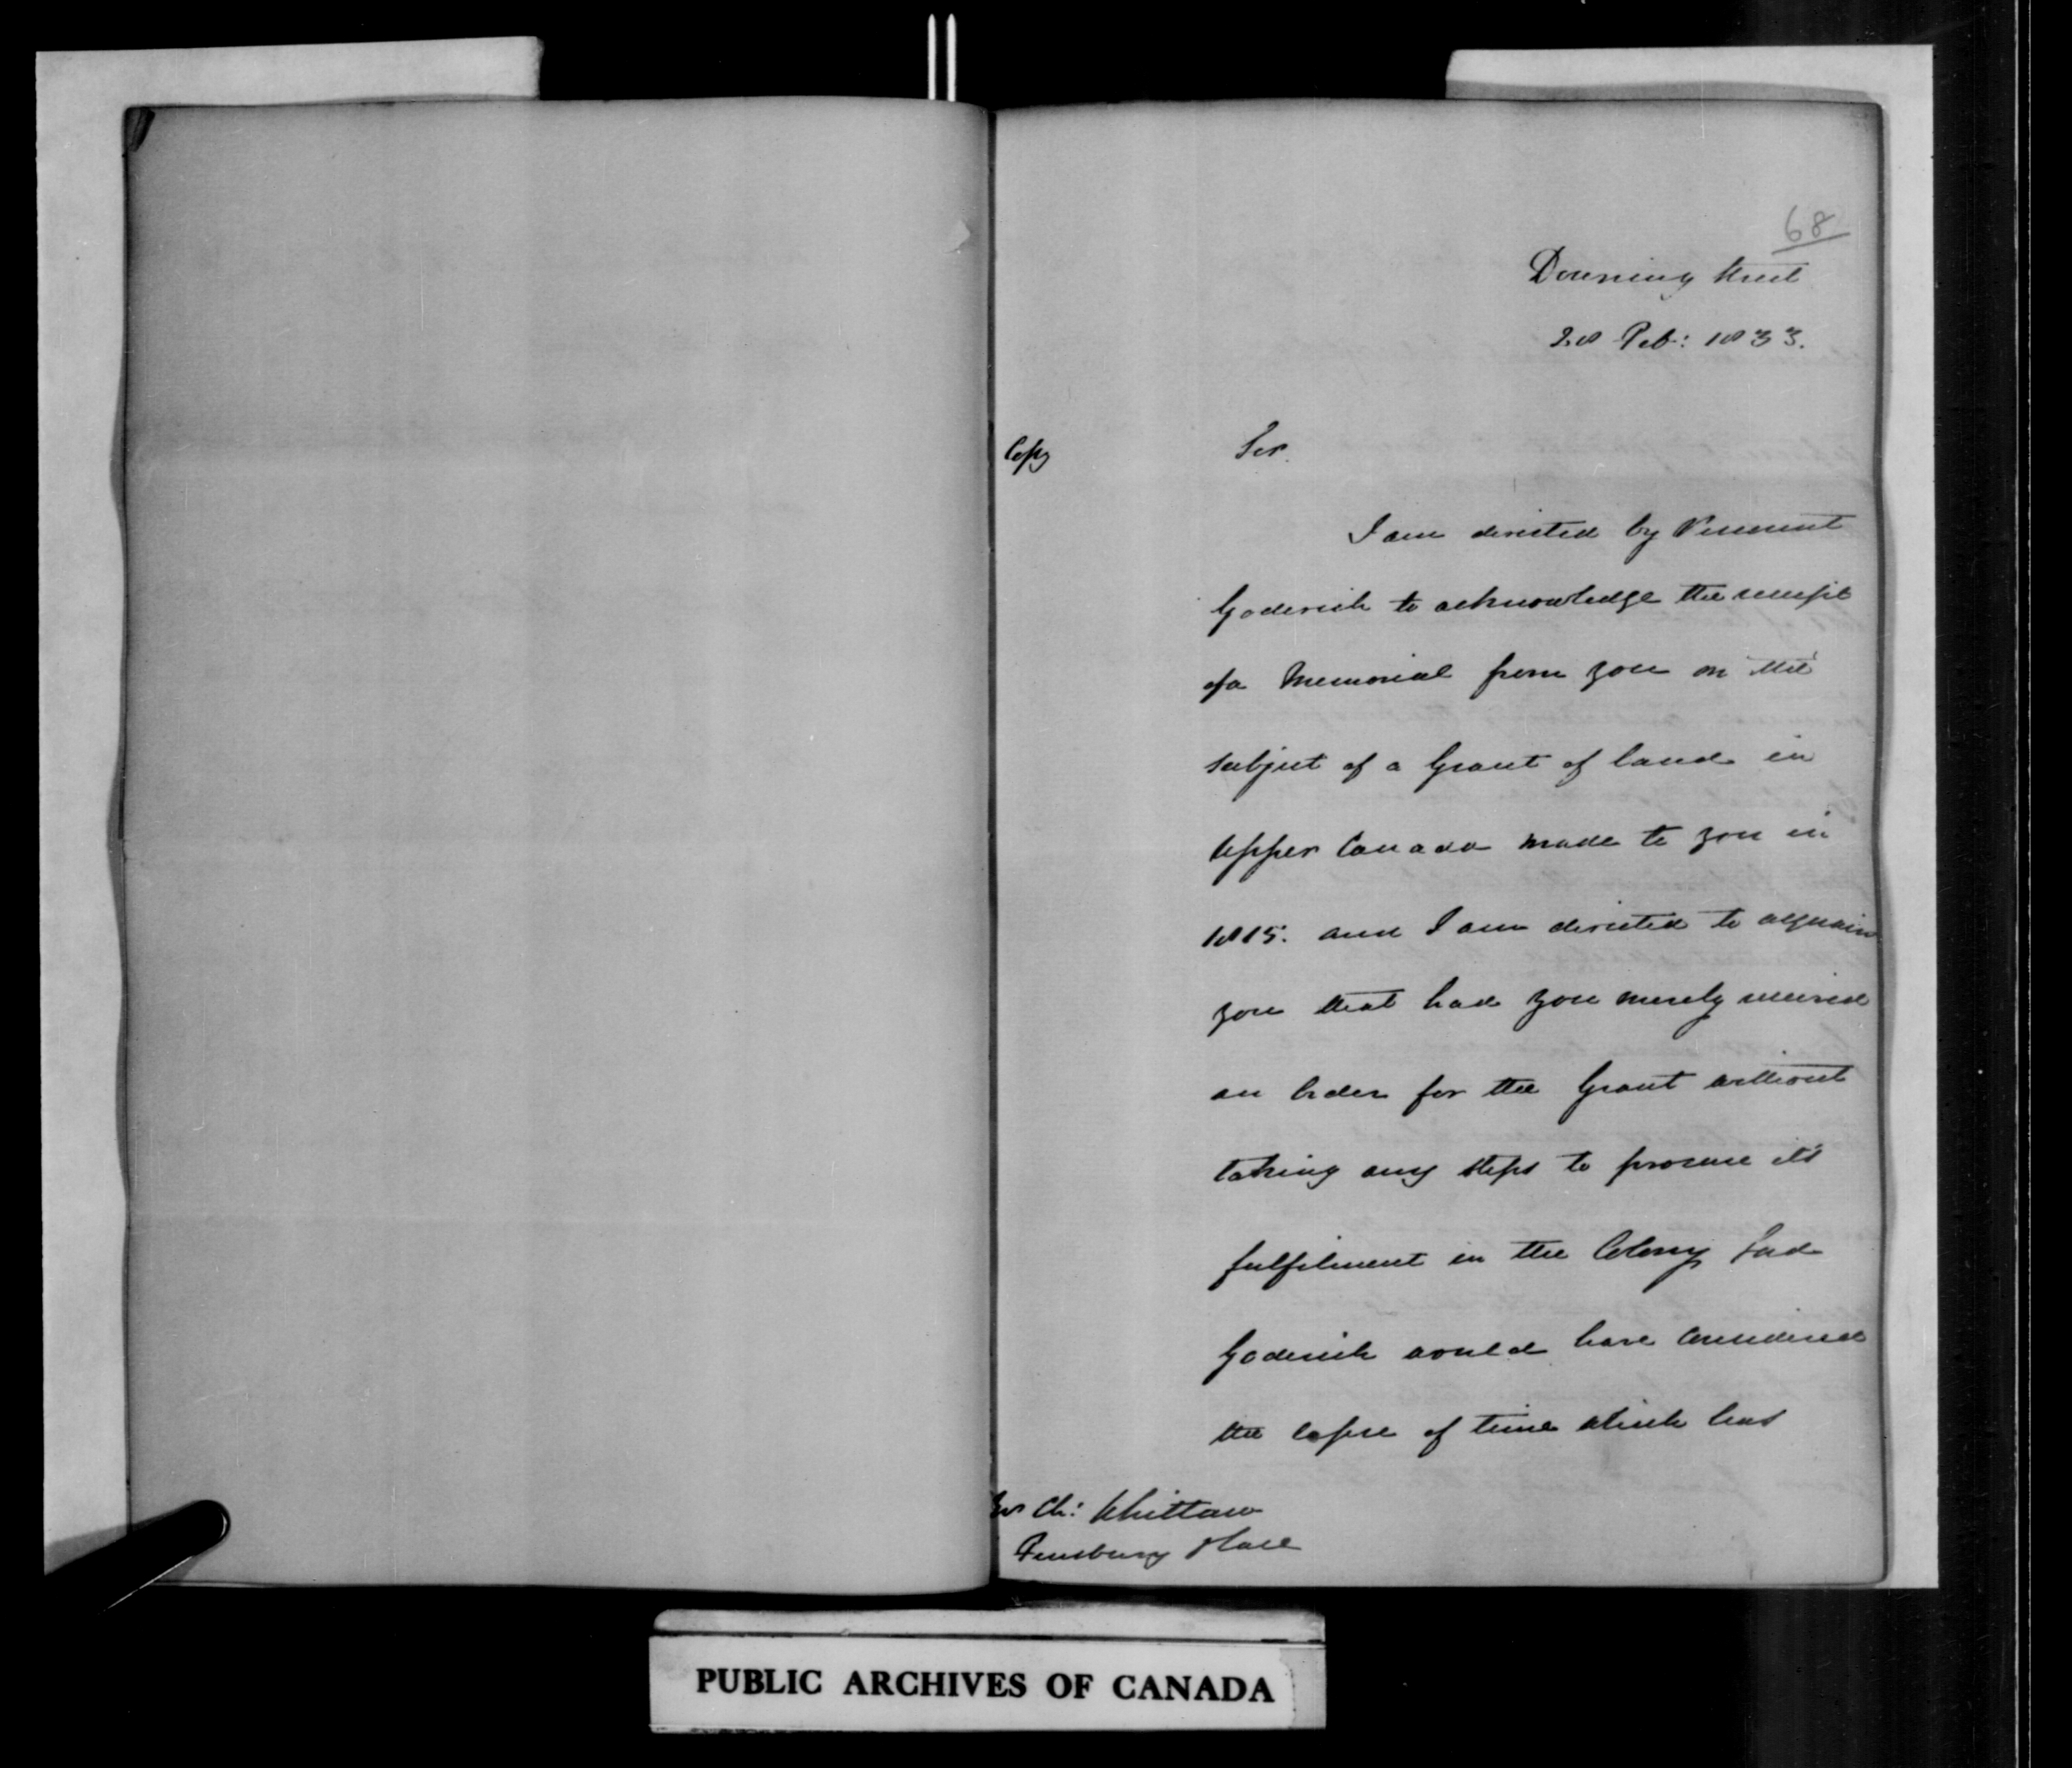 68
Downing Street
28 Feb: 1833.
Copy
Sir.
I am directed by Viscount
Goderich to acknowledge the receipt
of a Memorial from you on the
subject of a Grant of land in
Upper Canada made to you in
1815. and I am directed to acquain
you that had you merely received
an Order for the Grant without
taking any steps to procure it's
fulfilment in the Colony Lord
Goderich would have considered
the lapse of time which has
Ch: Whittaw
Finsbury Place
PUBLIC ARCHIVES OF CANADA